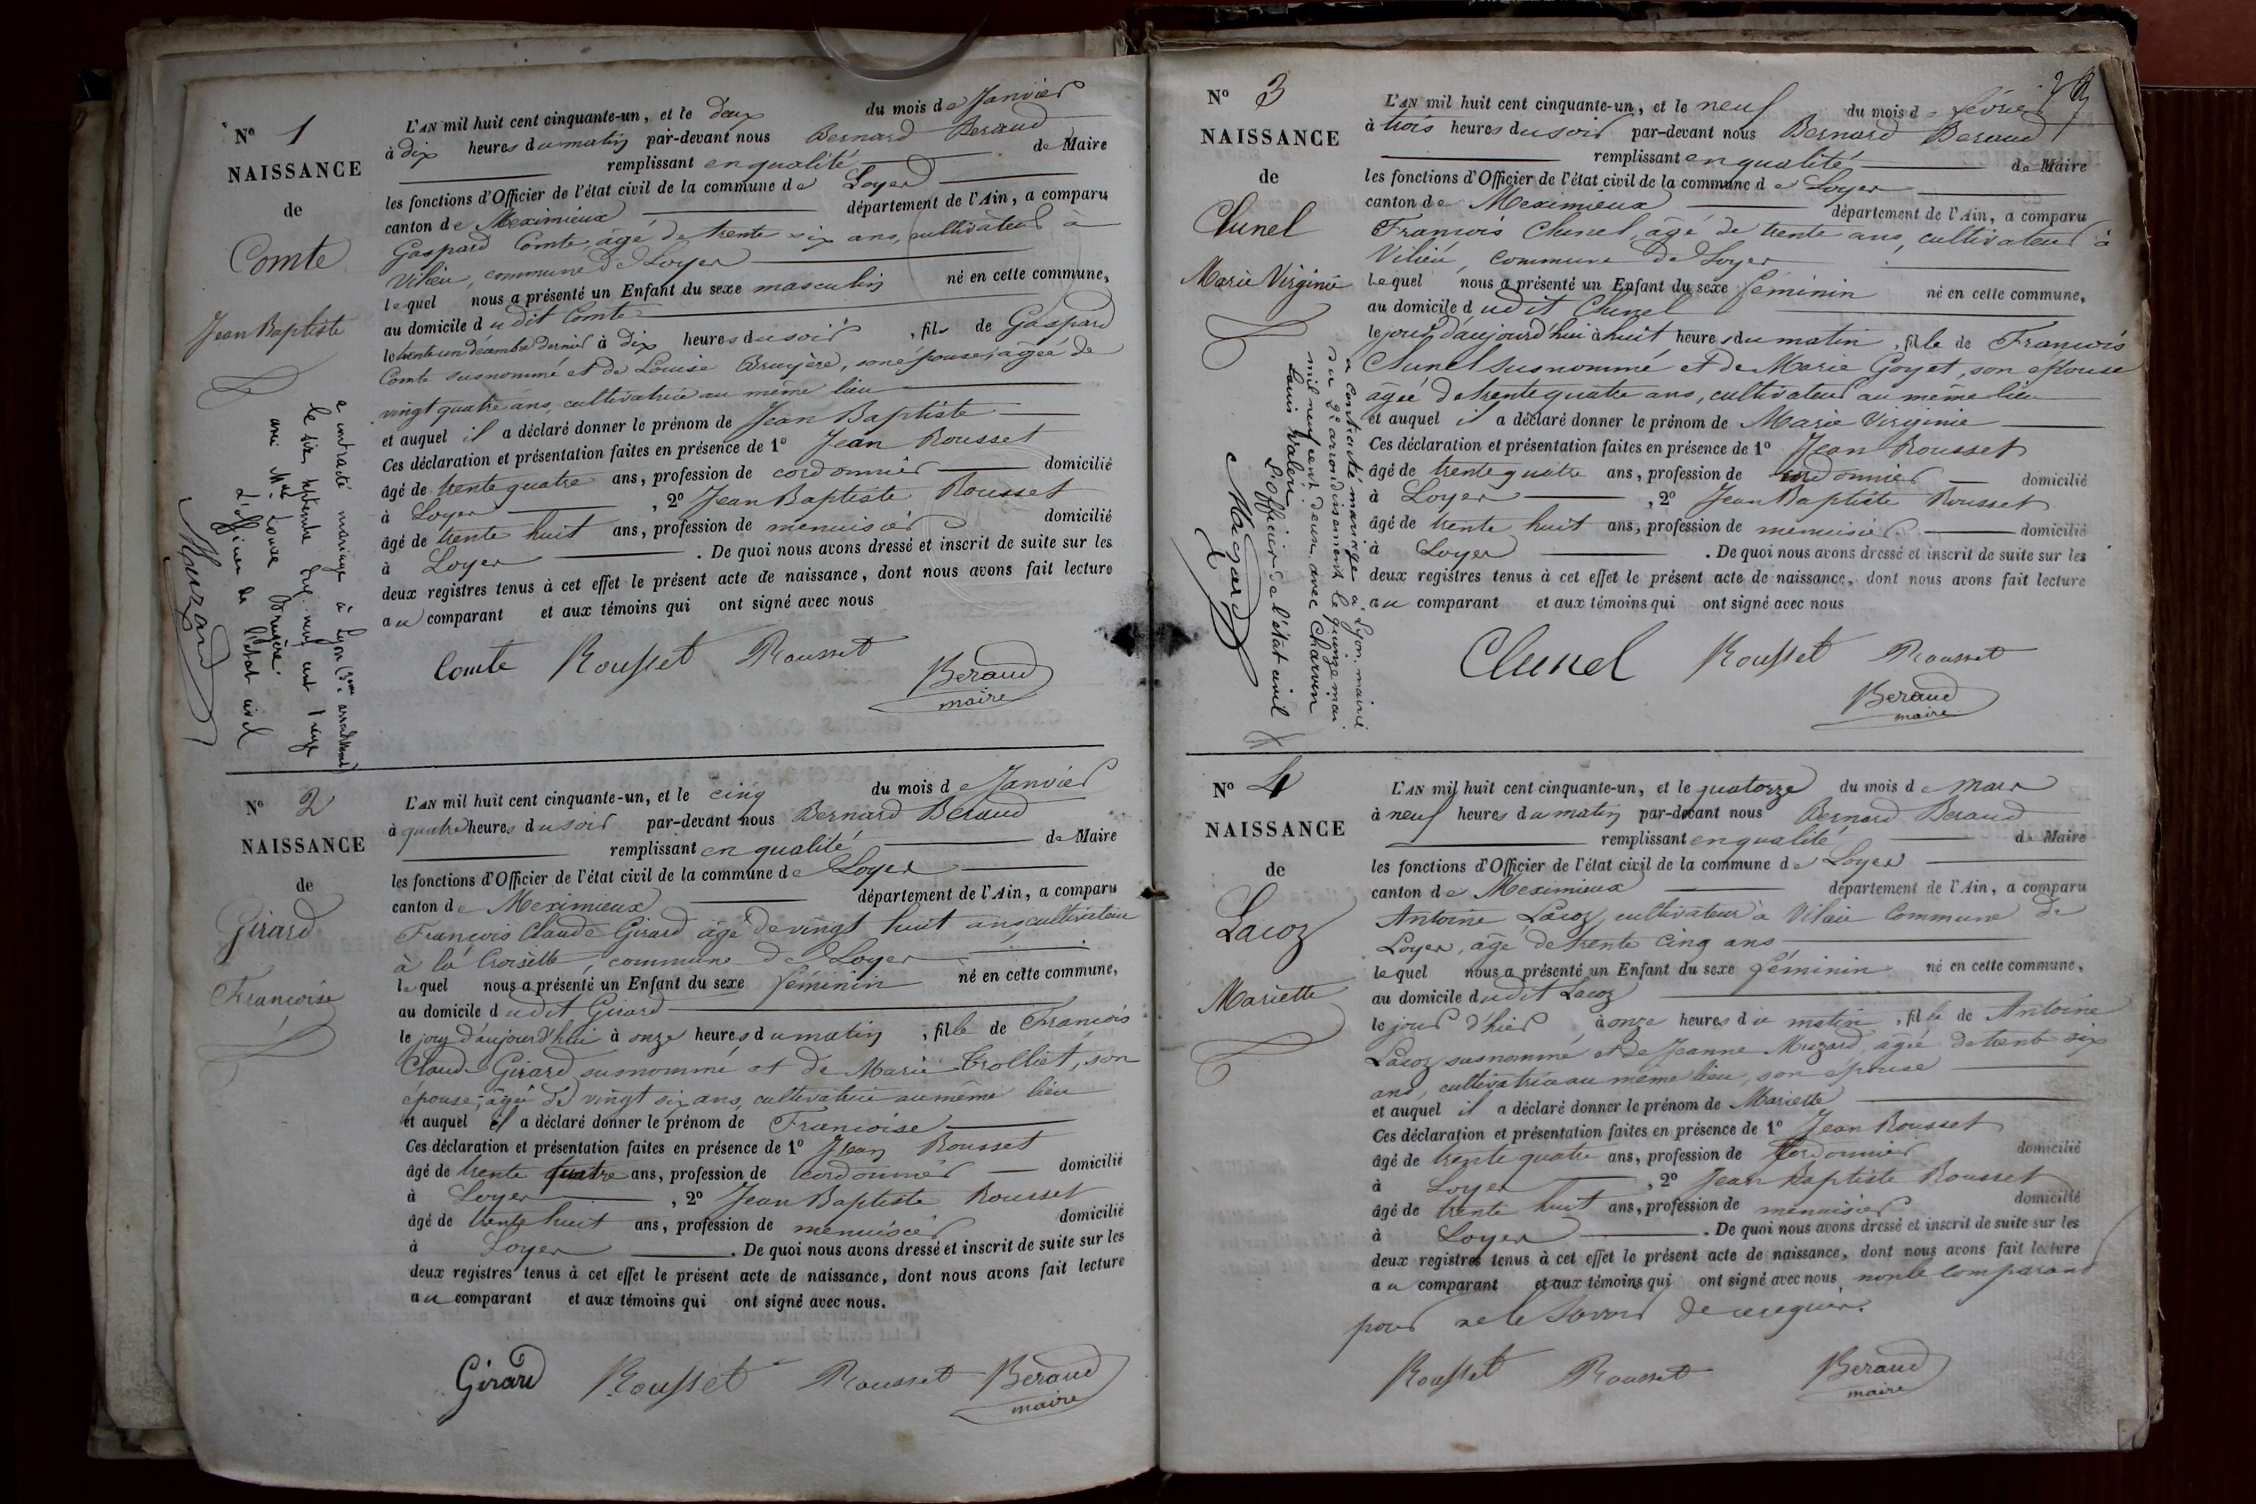 N° 1
NAISSANCE
de
Comte
Jean Baptiste
a contracté mariage à Lyon (3ème arrondissement)
le six septembre neuf cent treize
avec Mlle Bruyère
L'officier de l'état civil
Muzard
L'AN mil huit cent cinquante-un, et le deux du mois de Janvier
à dix heures du matin par-devant nous Bernard Beraud
remplissant en qualité de Maire
les fonctions d'Officier de l'état civil de la commune de Loyer
canton de Meximieux département de l'Ain, a comparu
Gaspard Comte, âgé de trente six ans, cultivateur à
Vilieu, commune de Loyer
lequel nous a présenté un Enfant du sexe masculin né en cette commune,
au domicile dudit Comte
le trente un décembre dernier à dix heures du soir, fils de Gaspard
Comte susnommé et de Louise Bruyère, son épouse, âgée de
vingt quatre ans, cultivatrice au même lieu
et auquel il a déclaré donner le prénom de Jean Baptiste
Ces déclaration et présentation faites en présence de 1° Jean Rousset
âgé de trente quatre ans, profession de cordonnier domicilié
à Loyer, 2° Jean Baptiste Rousset
âgé de trente huit ans, profession de menuisier domicilié
à Loyer. De quoi nous avons dressé et inscrit de suite sur les
deux registres tenus à cet effet le présent acte de naissance, dont nous avons fait lecture
au comparant et aux témoins qui ont signé avec nous
Comte Rousset Rousset Beraud
maire
N° 2
NAISSANCE
de
Girard
Françoise
L'AN mil huit cent cinquante-un, et le cinq du mois de Janvier
à quatre heures du soir par-devant nous Bernard Beraud
remplissant en qualité de Maire
les fonctions d'Officier de l'état civil de la commune de Loyer
canton de Meximieux département de l'Ain, a comparu
François Claude Girard âgé de vingt huit ans, cultivateur
à la Croisette, commune de Loyer
lequel nous a présenté un Enfant du sexe féminin né en cette commune,
au domicile dudit Girard
le jour d'aujourd'hui à onze heures du matin, fille de François
Claude Girard susnommé et de Marie Trolliet, son
épouse, âgée de vingt six ans, cultivatrice au même lieu
et auquel il a déclaré donner le prénom de Françoise
Ces déclaration et présentation faites en présence de 1° Jean Rousset
âgé de trente quatre ans, profession de cordonnier domicilié
à Loyer, 2° Jean Baptiste Rousset
âgé de trente huit ans, profession de menuisier domicilié
à Loyer. De quoi nous avons dressé et inscrit de suite sur les
deux registres tenus à cet effet le présent acte de naissance, dont nous avons fait lecture
au comparant et aux témoins qui ont signé avec nous.
Girard Rousset Rousset Beraud
maire
N° 3
NAISSANCE
de
Chunel
Marie Virginie
a contracté mariage à Lyon, mairie
du 2e arrondissement le quinze mai
mil neuf cent deux, avec Charvin
Louis Valéri
L'officier de l'état civil
Muzard
L'AN mil huit cent cinquante-un, et le neuf du mois de février
à trois heures du soir par-devant nous Bernard Beraud
remplissant en qualité de Maire
les fonctions d'Officier de l'état civil de la commune de Loyer
canton de Meximieux département de l'Ain, a comparu
François Chunel, âgé de trente ans, cultivateur à
Vilieu, commune de Loyer
lequel nous a présenté un Enfant du sexe féminin né en cette commune,
au domicile dudit Chunel
le jour d'aujourd'hui à huit heures du matin, fille de François
Chunel susnommé et de Marie Goyet, son épouse
âgée de trente quatre ans, cultivateur au même lieu
et auquel il a déclaré donner le prénom de Marie Virginie
Ces déclaration et présentation faites en présence de 1° Jean Rousset
âgé de trente quatre ans, profession de cordonnier domicilié
à Loyer, 2° Jean Baptiste Rousset
âgé de trente huit ans, profession de menuisier domicilié
à Loyer. De quoi nous avons dressé et inscrit de suite sur les
deux registres tenus à cet effet le présent acte de naissance, dont nous avons fait lecture
au comparant et aux témoins qui ont signé avec nous
Chunel Rousset Rousset
Beraud
maire
N° 4
NAISSANCE
de
Lacoz
Mariette
L'AN mil huit cent cinquante-un, et le quatorze du mois de mars
à neuf heures du matin par-devant nous Bernard Beraud
remplissant en qualité de Maire
les fonctions d'Officier de l'état civil de la commune de Loyer
canton de Meximieux département de l'Ain, a comparu
Antoine Lacoz, cultivateur à Vilieu Commune de
Loyer, âgé de trente cinq ans
lequel nous a présenté un Enfant du sexe féminin né en cette commune,
au domicile dudit Lacoz
le jour d'hier à onze heures du matin, fille de Antoine
Lacoz susnommé et de Jeanne Muzard, âgée de trente six
ans, cultivatrice au même lieu, son épouse
et auquel il a déclaré donner le prénom de Mariette
Ces déclaration et présentation faites en présence de 1° Jean Rousset
âgé de trente quatre ans, profession de cordonnier domicilié
à Loyer, 2° Jean Baptiste Rousset
âgé de trente huit ans, profession de menuisier domicilié
à Loyer. De quoi nous avons dressé et inscrit de suite sur les
deux registres tenus à cet effet le présent acte de naissance, dont nous avons fait lecture
au comparant et aux témoins qui ont signé avec nous non le comparant
pour ne le savoir de ce requis.
Rousset Rousset Beraud
maire